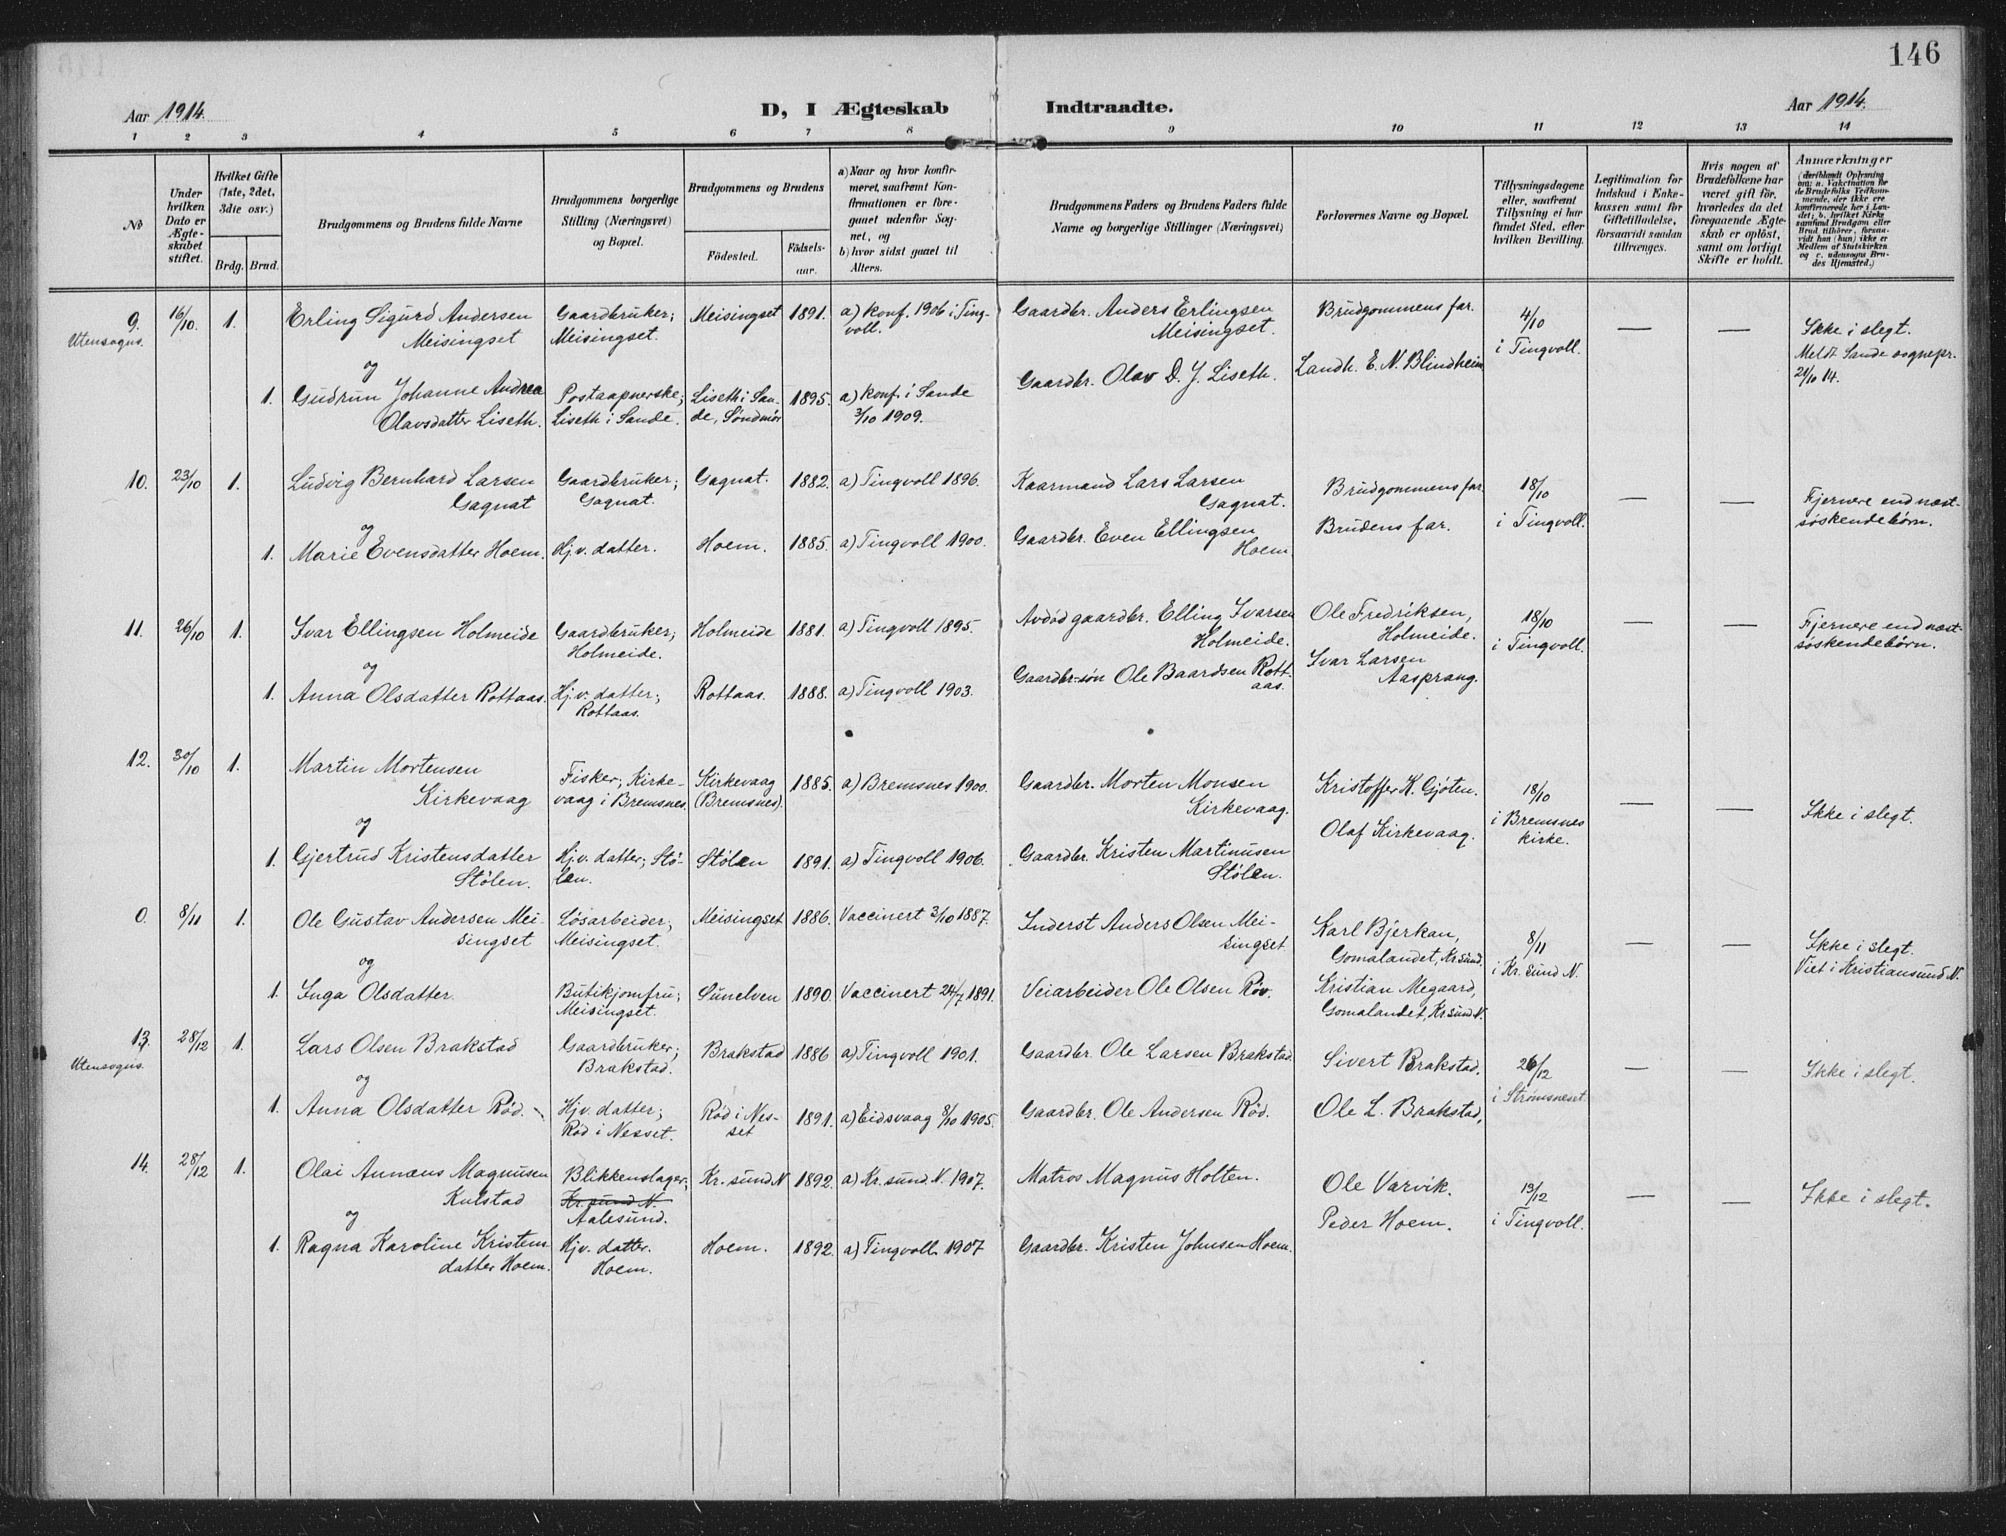 146
Aar 1914.
D, I Ægteskab Indtraadte.
Aar 1914.
1 2 3 4 5 6 7 8 9 10 11 12 13 14
No
Under hvilken Dato er Ægteskabet stiftet.
Hvilket Gifte (1ste, 2det, 3die osv.)
Brdg. Brud.
Brudgommens og Brudens fulde Navne
Brudgommens borgerlige Stilling (Næringsvei) og Bopæl.
Brudgommens og Brudens
Fødested.
Fødselsaar.
a) Naar og hvor konfirmeret, saafremt Konfirmationen er foregaaet udenfor Sognet, og
b) hvor sidst gaaet til Alters.
Brudgommens Faders og Brudens Faders fulde Navne og borgerlige Stillinger (Næringsvei)
Forlovernes Navne og Bopæl.
Tillysningsdagene eller, saafremt Tillysning ei har fundet Sted, efter hvilken Bevilling.
Legitimation for Indskud i Enkekassen samt for Giftetilladelse, forsaavidt saadan tiltrænges.
Hvis nogen af Brudefolkene har været gift før, hvorledes da det foregaaende Ægteskab er opløst, samt om lovligt Skifte er holdt.
Anmærkninger
(deriblandt Oplysning om: a. Vakcination for de Brudefolks Vedkommende, der ikke ere konfirmerede her i Landet; b. hvilket Kirkesamfund Brudgom eller Brud tilhører, forsaavidt han (hun) ikke er Medlem af Statskirken og c. udensogns Brudes Hjemsted.)
9. 16/10. 1. Erling Sigurd Andersen Gaardbruker; Meisingset 1891. a) konf. 1906 i Ting- Gaardbr. Anders Erlingsen Brudgommens far. 4/10 — — Ikke i slegt.
Utensogns. Meisingset Meisingset. voll. Meisingset. i Tingvoll. Meldt Sande sognepr.
og Landh. E. N. Blindheim 21/10 14.
1. Gudrun Johanne Andrea Postaapnerske; Liseth i San- 1895. a) konf. i Sande Gaardbr. Olav D. J. Liseth.
Olavsdatter Liseth. Liseth i Sande. de, Søndmør 3/10 1909.
10. 23/10 1. Ludvig Bernhard Larsen Gaardbruker; Gagnat. 1882. a) Tingvoll 1896. Kaarmand Lars Larsen Brudgommens far. 18/10 — — Fjernere end næst-
Gagnat Gagnat. Gagnat. i Tingvoll. søskendebørn.
og Brudens far.
1. Marie Evensdatter Hoem. Hj.v. datter. Hoem. 1885. a) Tingvoll 1900. Gaardbr. Even Ellingsen
Hoem
11. 26/10 1. Ivar Ellingsen Holmeide Gaardbruker; Holmeide 1881. a) Tingvoll 1895. Avdød gaardbr. Elling Ivarsen Ole Fredriksen, 18/10 — — Fjernere end næst-
Holmeide. Holmeide. Holmeide. i Tingvoll. søskendebørn.
og Ivar Larsen
1. Anna Olsdatter Rottaas. Hj.v. datter; Rottaas. 1888. a) Tingvoll 1903. Gaardbr.-søn Ole Baardsen Rott- Aasprang.
Rottaas. aas.
12. 30/10 1. Martin Mortensen Fisker; Kirke- Kirkevaag 1885. a) Bremsnes 1900. Gaardbr. Morten Monsen Kristoffer K. Gjøten. 18/10 — —
Kirkevaag vaag i Bremsnes. (Bremsnes). Kirkevaag. i Bremsnes Ikke i slegt.
og Olaf Kirkevaag. kirke.
1. Gjertrud Kristensdatter Hj.v. datter; Stø- Stølen 1891. a) Tingvoll 1906. Gaardbr. Kristen Martinusen
Stølen. len. Stølen.
0. 8/11 1. Ole Gustav Andersen Mei- Løsarbeider; Meisingset 1886. Vaccinert 3/10 1887. Inderst Anders Olsen Mei- Karl Bjerkan, 8/11 — — Ikke i slegt.
singset Meisingset. singset Gomalandet, Kr.sund. i Kr.sund N. Viet i Kristiansund N.
og
1. Inga Olsdatter. Butikjomfru; Sunelven 1890. Vaccinert 24/7 1891. Veiarbeider Ole Olsen Røv. Kristian Megaard,
Meisingset. Gomalandet, Kr.sund N.
13. 28/12 1. Lars Olsen Brakstad Gaardbruker; Brakstad 1886 a) Tingvoll 1901. Gaardbr. Ole Larsen Brakstad. Sivert Brakstad. 26/12 — — Ikke i slegt.
Utensogns. Brakstad. i Strømsneset.
og
1. Anna Olsdatter Rød. Hj.v. datter; Rød i Nes- 1891. a) Eidsvaag 8/10 1905. Gaardbr. Ole Andersen Rød. Ole L. Brakstad,
Rød i Nesset. set
14. 28/12 1. Olai Annæus Magnusen Blikkenslager; Kr.sund N 1892. a) Kr.sund N. 1907. Matros Magnus Holten. Ole Varvik. 13/12 — — Ikke i slegt.
Kulstad Kr.sund N. i Tingvoll.
og Aalesund. Peder Hoem.
1. Ragna Karoline Kristens- Hj.v. datter. Hoem. 1892. a) Tingvoll 1907 Gaardbr. Kristen Johnsen Hoem.
datter Hoem. Hoem.